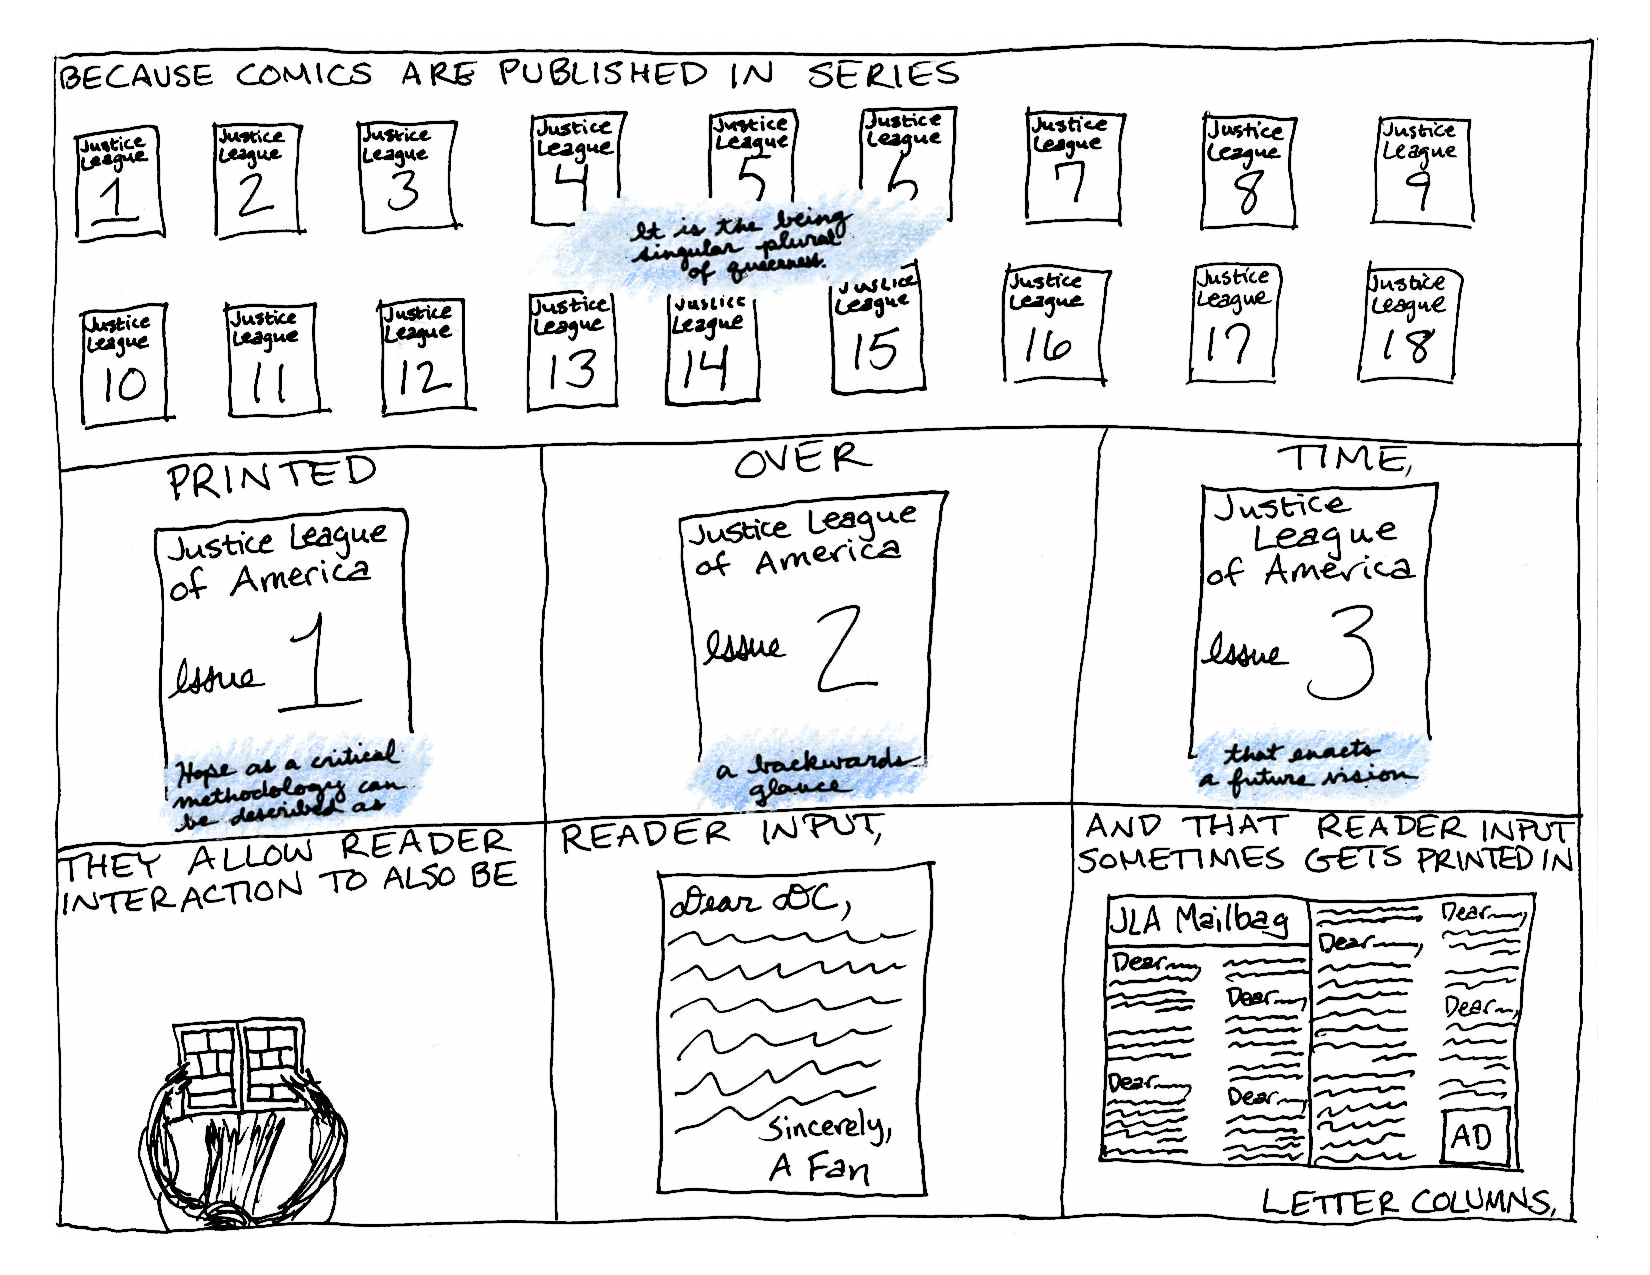 BECAUSE COMICS ARE PUBLISHED IN SERIES
Justice
League
1
Justice
League
2
Justice
League
3
Justice
League
4
Justice
League
5
Justice
League
6
Justice
League
7
Justice
League
8
Justice
League
9
It is the being
singular plural
of queerness.
Justice
League
10
Justice
League
11
Justice
League
12
Justice
League
13
Justice
League
14
Justice
League
15
Justice
League
16
Justice
League
17
Justice
League
18
PRINTED
Justice League
of America
Issue 1
Hope as a critical
methodology can
be described as
OVER
Justice League
of America
Issue 2
a backwards
glance
TIME,
Justice
League
of America
Issue 3
that enacts
a future vision
THEY ALLOW READER
INTERACTION TO ALSO BE
READER INPUT,
Dear DC,
Sincerely,
A Fan
AND THAT READER INPUT
SOMETIMES GETS PRINTED IN
JLA Mailbag
Dear
Dear
Dear
Dear
Dear
Dear
Dear
AD
LETTER COLUMNS.